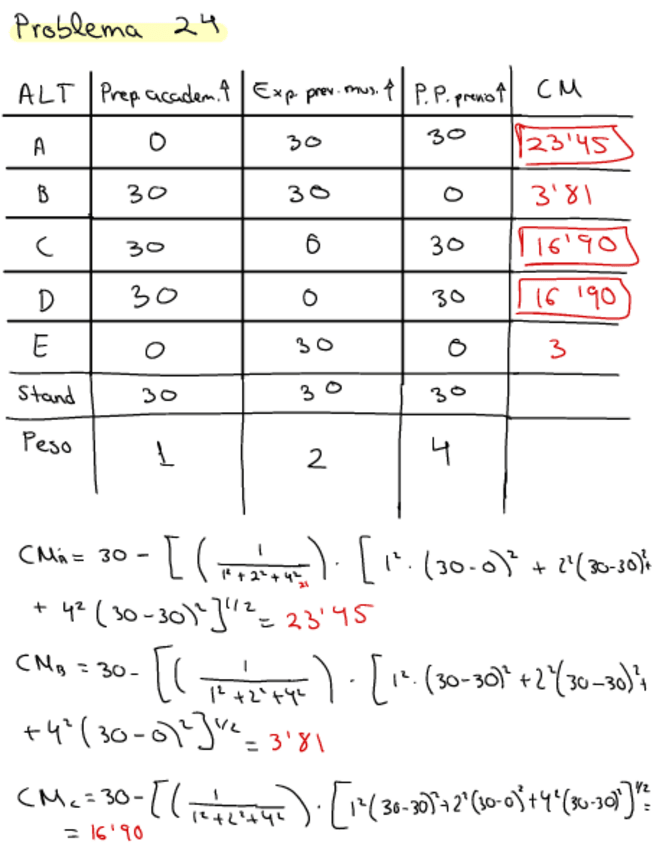 Problema 24
ALT Prep. academ.↑ Exp. prev. mus.↑ P.P. previo↑ CM
A 0 30 30 23'45
B 30 30 0 3'81
C 30 0 30 16'90
D 30 0 30 16'90
E 0 30 0 3
Stand 30 30 30
Peso 1 2 4
CM_A = 30 - [(1/(1²+2²+4²)) · [1² · (30-0)² + 2²(30-30)² +
21
+ 4² (30-30)²]^1/2 = 23'45
CM_B = 30 - [(1/(1²+2²+4²)) · [1² · (30-30)² + 2²(30-30)² +
+ 4² (30-0)²]^1/2 = 3'81
CM_C = 30 - [(1/(1²+2²+4²)) · [1²(30-30)² + 2²(30-0)² + 4²(30-30)²]^1/2 =
= 16'90